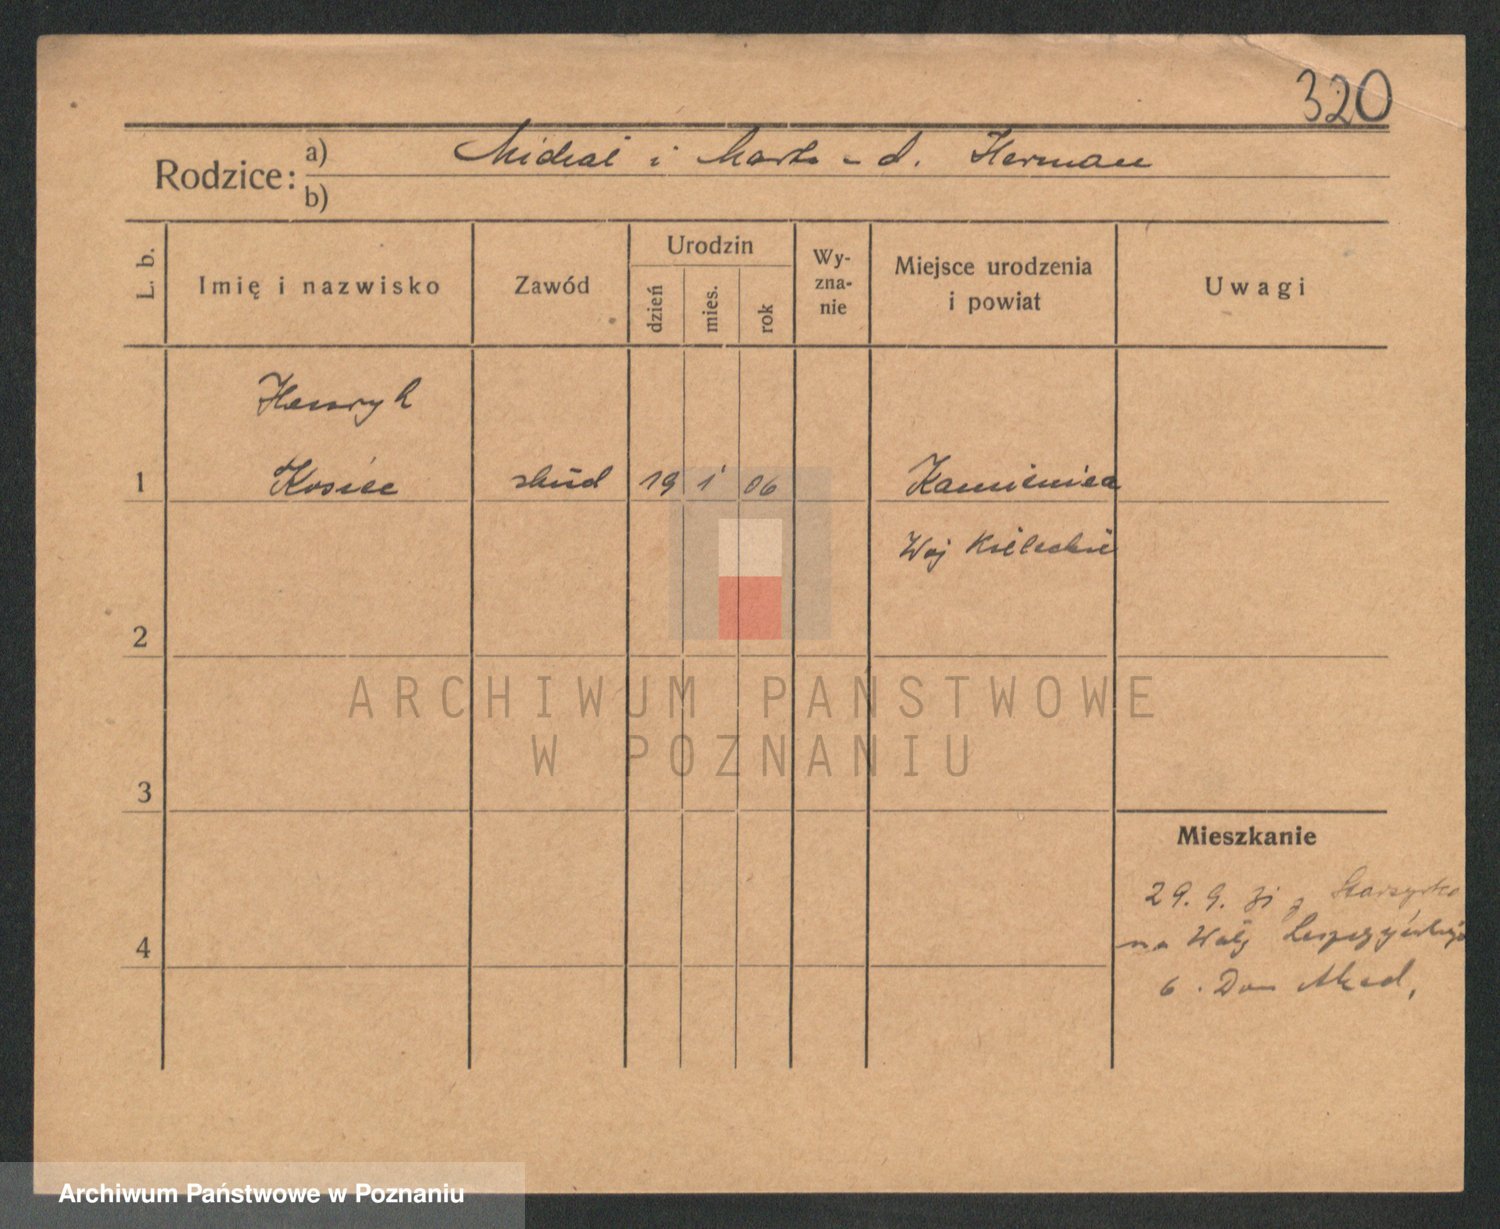 320
Rodzice: a) Michał i Marta - d. Herman
b)
L. b.
Imię i nazwisko
Zawód
Urodzin
dzień
mies.
rok
Wy-
zna-
nie
Miejsce urodzenia
i powiat
Uwagi
Henryk
1 Kosiec stud 19 1 06 Kamienica
Woj Kieleckie
2
3
4
Mieszkanie
29. 9. 31 z
na Wały Leszczyńskiego
6. Dom Akad.
ARCHIWUM PAŃSTWOWE
W POZNANIU
Archiwum Państwowe w Poznaniu